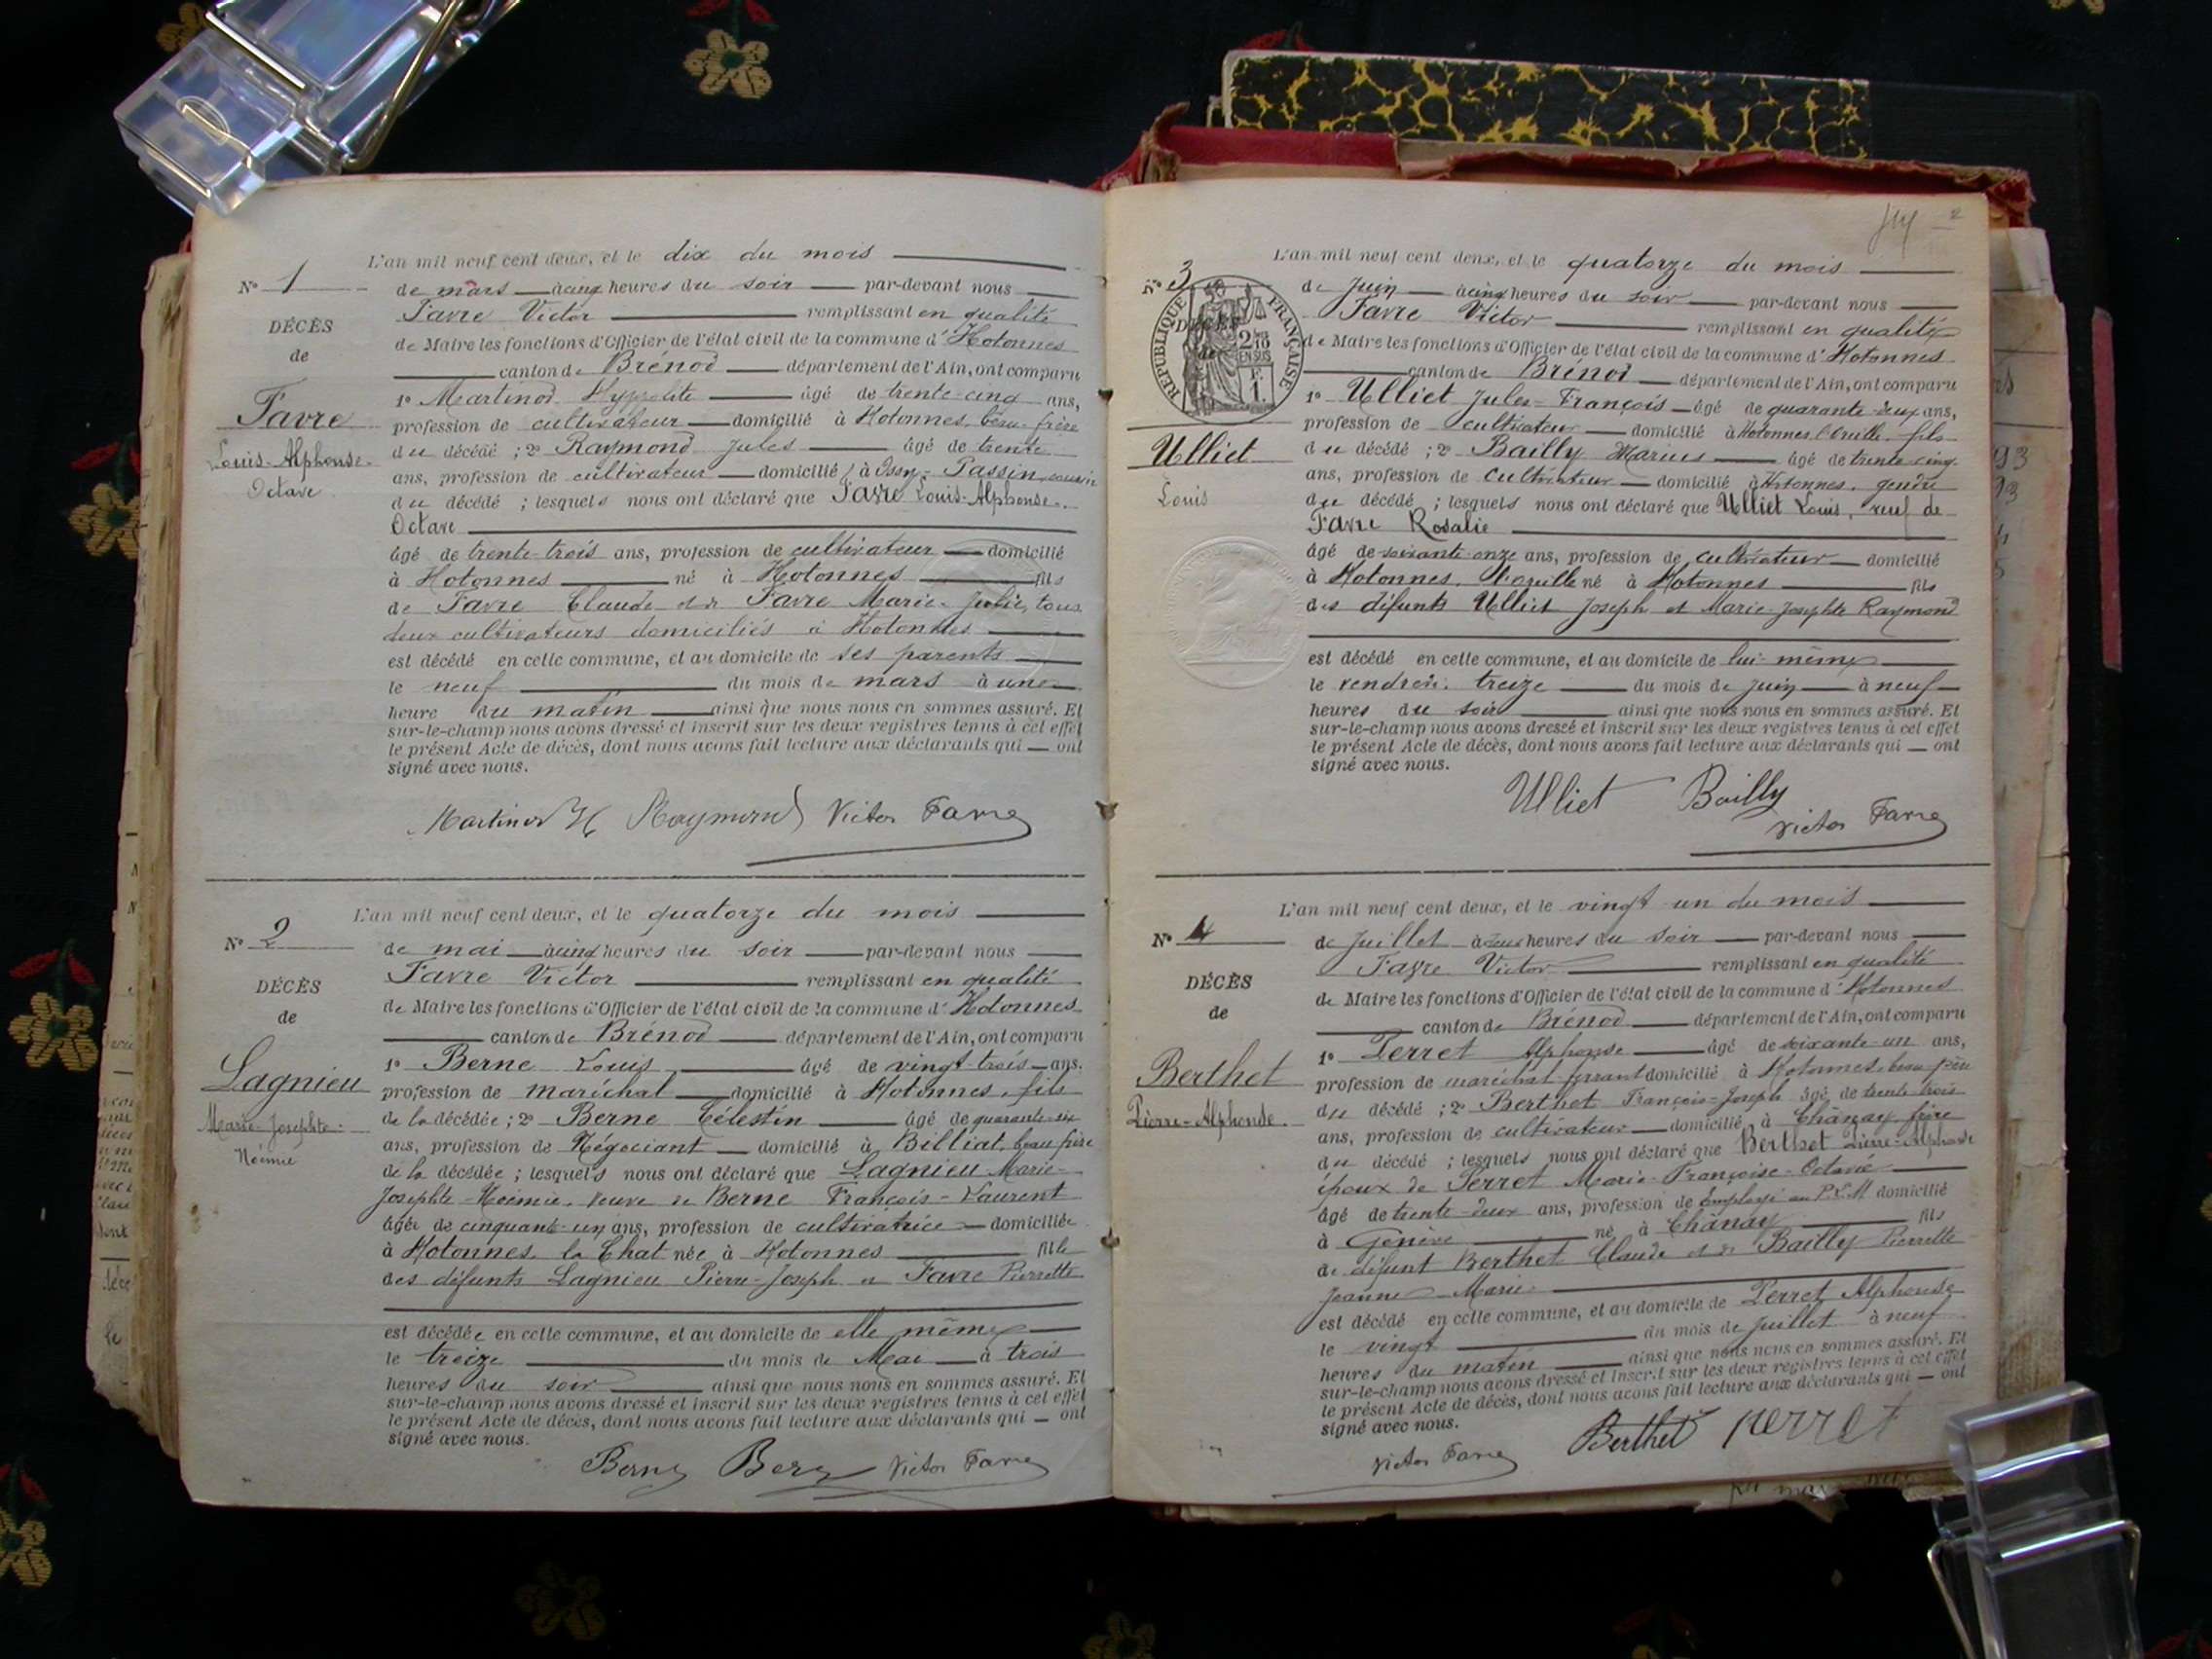 L'an mil neuf cent deux, et le dix du mois
N° 1
de mars à cinq heures du soir par-devant nous
DÉCÈS
Favre Victor remplissant en qualité
de
de Maire les fonctions d'Officier de l'état civil de la commune d'Hotonnes
canton de Brénod département de l'Ain, ont comparu
1° Martinod Hyppolite âgé de trente-cinq ans,
Favre
profession de cultivateur domicilié à Hotonnes, beau-frère
Louis-Alphonse-
du décédé ; 2° Raymond Jules âgé de trente
Octave
ans, profession de cultivateur domicilié à Passin, cousin
du décédé ; lesquels nous ont déclaré que Favre Louis-Alphonse-
Octave
âgé de trente-trois ans, profession de cultivateur domicilié
à Hotonnes né à Hotonnes fils
de Favre Claude et de Favre Marie-Julie, tous
deux cultivateurs domiciliés à Hotonnes
est décédé en cette commune, et au domicile de ses parents
le neuf du mois de mars à une
heure du matin ainsi que nous nous en sommes assuré. Et
sur-le-champ nous avons dressé et inscrit sur les deux registres tenus à cet effet
le présent Acte de décès, dont nous avons fait lecture aux déclarants qui ont
signé avec nous.
Martinod H Raymond Victor Favre
L'an mil neuf cent deux, et le quatorze du mois
N° 2
de mai à cinq heures du soir par-devant nous
DÉCÈS
Favre Victor remplissant en qualité
de
de Maire les fonctions d'Officier de l'état civil de la commune d'Hotonnes
canton de Brénod département de l'Ain, ont comparu
1° Berne Louis âgé de vingt-trois ans,
Lagnieu
profession de maréchal domicilié à Hotonnes, fils
Marie-Josephte-
de la décédée ; 2° Berne Célestin âgé de quarante-six
Noémie
ans, profession de Négociant domicilié à Billiat, beau-frère
de la décédée ; lesquels nous ont déclaré que Lagnieu Marie-
Josephte-Noémie, veuve de Berne François-Laurent
âgée de cinquante-un ans, profession de cultivatrice domiciliée
à Hotonnes, la Chat née à Hotonnes fille
des défunts Lagnieu Pierre-Joseph et Favre Pierrette
est décédée en cette commune, et au domicile de elle même
le treize du mois de Mai à trois
heures du soir ainsi que nous nous en sommes assuré. Et
sur-le-champ nous avons dressé et inscrit sur les deux registres tenus à cet effet
le présent Acte de décès, dont nous avons fait lecture aux déclarants qui ont
signé avec nous.
Berne Berne Victor Favre
2
L'an mil neuf cent deux, et le quatorze du mois
N° 3
de Juin à cinq heures du soir par-devant nous
RÉPUBLIQUE FRANÇAISE
DÉCÈS
2/10 EN SUS
F. 1.
Favre Victor remplissant en qualité
de Maire les fonctions d'Officier de l'état civil de la commune d'Hotonnes
canton de Brénod département de l'Ain, ont comparu
1° Ulliet Jules-François âgé de quarante-deux ans,
profession de cultivateur domicilié à Hotonnes fils
Ulliet
du décédé ; 2° Bailly Marius âgé de trente-cinq
Louis
ans, profession de cultivateur domicilié à Hotonnes, gendre
du décédé ; lesquels nous ont déclaré que Ulliet Louis, veuf de
Favre Rosalie
âgé de soixante-onze ans, profession de cultivateur domicilié
à Hotonnes, né à Hotonnes fils
des défunts Ulliet Joseph et Marie-Josephte Raymond
est décédé en cette commune, et au domicile de lui-même
le vendredi treize du mois de Juin à neuf
heures du soir ainsi que nous nous en sommes assuré. Et
sur-le-champ nous avons dressé et inscrit sur les deux registres tenus à cet effet
le présent Acte de décès, dont nous avons fait lecture aux déclarants qui ont
signé avec nous.
Ulliet Bailly
Victor Favre
L'an mil neuf cent deux, et le vingt un du mois
N° 4
de Juillet à deux heures du soir par-devant nous
DÉCÈS
Favre Victor remplissant en qualité
de
de Maire les fonctions d'Officier de l'état civil de la commune d'Hotonnes
canton de Brénod département de l'Ain, ont comparu
1° Perret Alphonse âgé de soixante-un ans,
Berthet
profession de maréchal ferrant domicilié à Hotonnes, beau-père
Pierre-Alphonse
du décédé ; 2° Berthet François-Joseph âgé de trente-trois
ans, profession de cultivateur domicilié à Chânay, frère
du décédé ; lesquels nous ont déclaré que Berthet Pierre-Alphonse
époux de Perret Marie-Françoise-Octavie
âgé de trente-deux ans, profession de Employé au P.L.M domicilié
à Genève né à Chânay fils
de défunt Berthet Claude et de Bailly Pierrette
Jeanne-Marie
est décédé en cette commune, et au domicile de Perret Alphonse
le vingt du mois de Juillet à neuf
heures du matin ainsi que nous nous en sommes assuré. Et
sur-le-champ nous avons dressé et inscrit sur les deux registres tenus à cet effet
le présent Acte de décès, dont nous avons fait lecture aux déclarants qui ont
signé avec nous.
Berthet Perret
Victor Favre